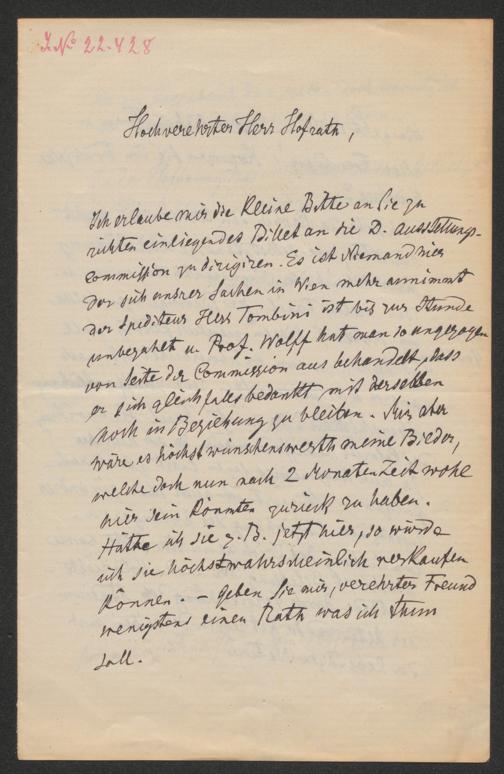 I.No 22.428
Hochverehrter Herr Hofrath,
Ich erlaube mir die kleine Bitte an Sie zu
richten einliegendes Billet an die D. Ausstellungs-
commission zu dirigiren. Es ist Niemand hier
der sich unsrer Sachen in Wien mehr annimmt
der Spediteur Herr Tombini ist bis zur Stunde
unbezahlt u. Prof. Wolff hat man so ungezogen
von Seite der Commission aus behandelt, dass
er sich gleichfalls bedankt mit derselben
noch in Beziehung zu bleiben. Mir aber
wäre es höchst wünschenswerth meine Bilder,
welche doch nun nach 2 Monaten Zeit wohl
hier sein könnten zurück zu haben.
Hätte ich sie z. B. jetzt hier, so würde
ich sie höchstwahrscheinlich verkaufen
können. – Geben Sie mir, verehrter Freund
wenigstens einen Rath was ich thun
soll.